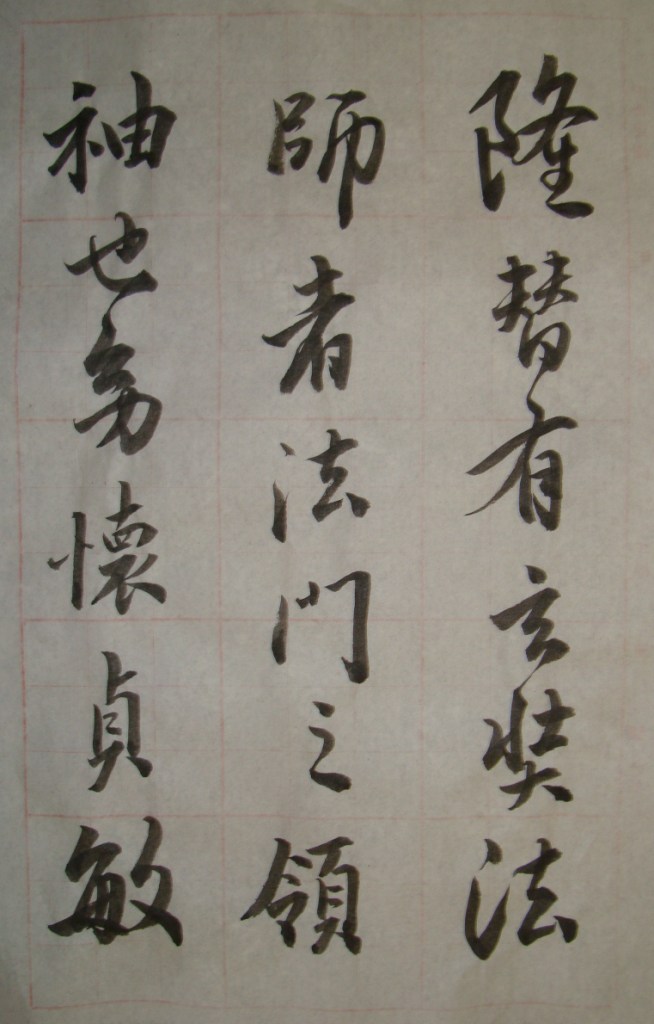 隆替有玄奘法
師者法門之領
袖也㓜懷貞敏